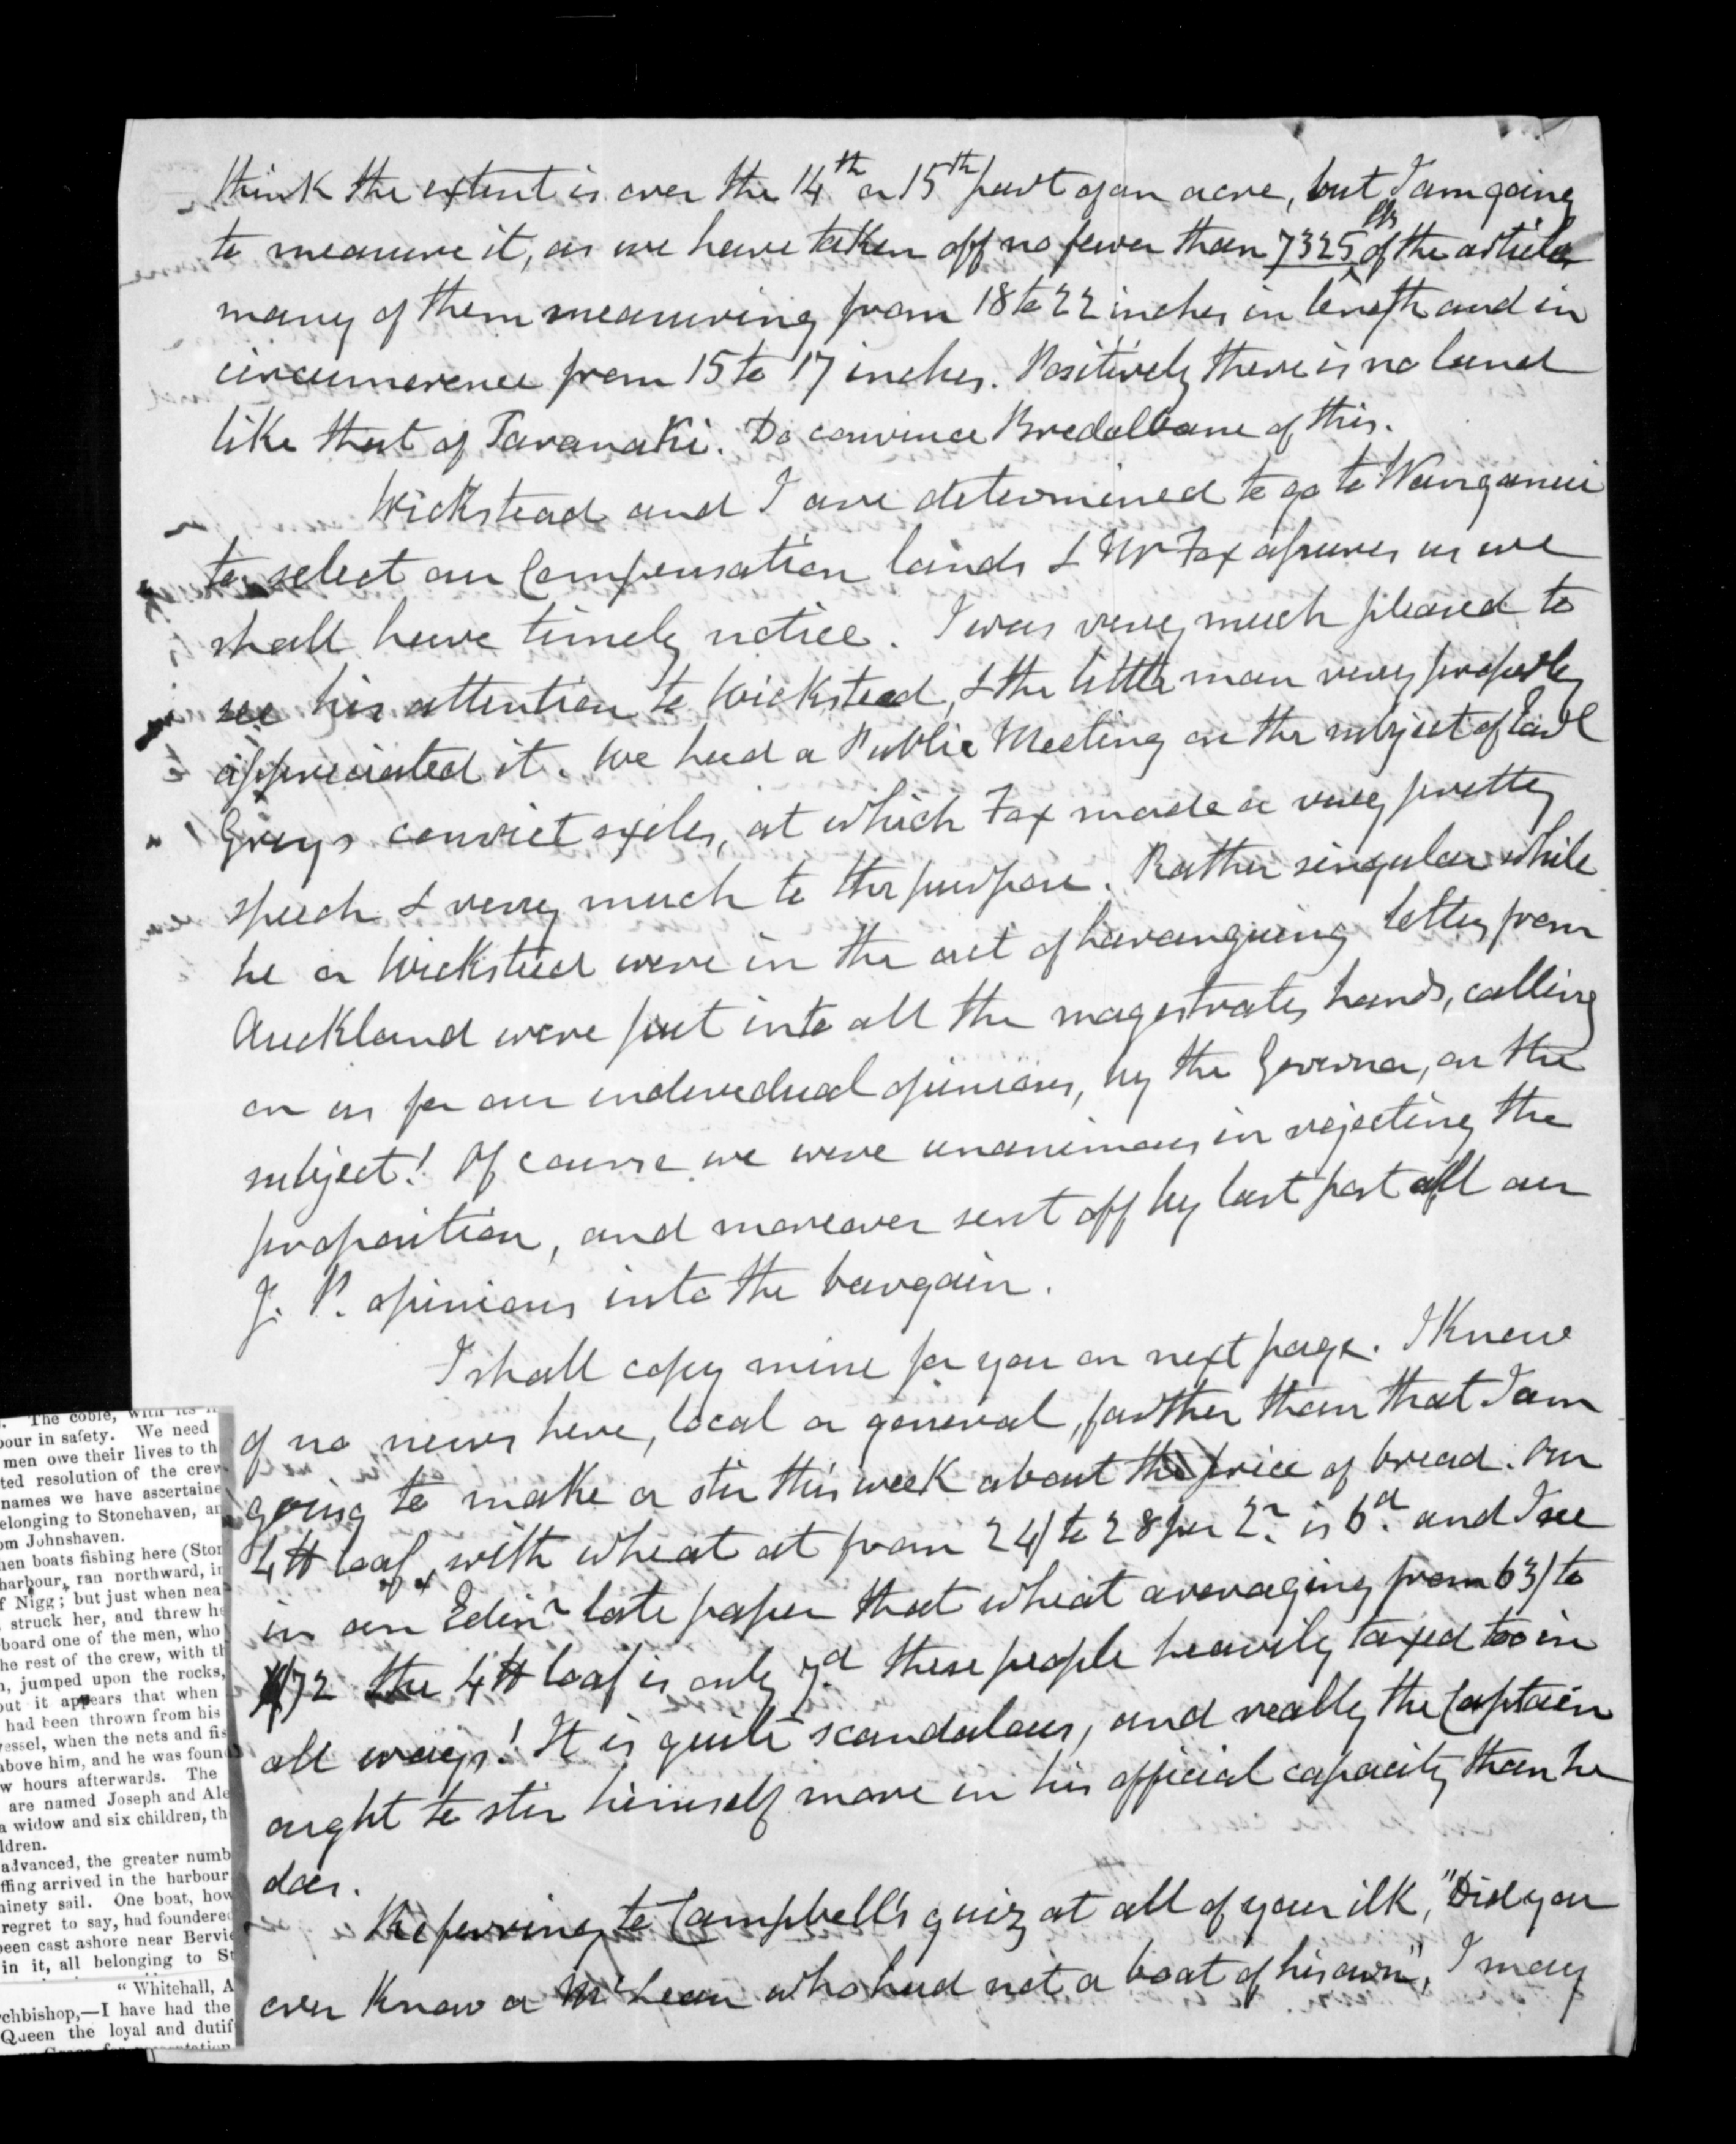 think the extent is over the 14th or 15th part of an acre, but I am going
to measure it, as we have taken off no fewer than 7325 lbs of the article
many of them measuring from 18 to 22 inches in length and in
circumerence from 15 to 17 inches. Positively there is no land
like that of Taranaki. Do convince Bredalbane of this.
Wickstead and I are determined to go to Wanganui
to select our Compensation lands & Mr Fox assures us we
shall have timely notice. I was very much pleased to
see his attention to Wickstead, & the little man very properly
appreciated it. We had a Public Meeting on the subject of Earl
Greys convict exiles, at which Fox made a very pretty
speech & very much to the purpose. Rather singular while
he or Wicksteed were in the act of haranguing letters from
Auckland were put into all the magestrates hands, calling
on us for our indevedual opinions, by the Governor, on the
subject! Of course we were unanimous in rejecting the
proposition, and moreover sent off by last post all our
J. P. opinions into the bargain.
I shall copy mine for you on next page. I know
of no news here, local or general, farther than that I am
going to make a stir this week about the price of bread. Our
4 lb loaf, with wheat at from 24/ to 28 per Qr. is 6d. and I see
in an Edinr late paper that wheat averaging from 63/ to
72 the 4 lb loaf is only 7d these people heavily taxed too in
all ways! It is quite scandalous, and really the Captain
ought to stir himself more in his official capacity than he
does.
Referring to Campbell's quiz at all of your ilk, "Did you
ever know a McLean who had not a boat of his own", I may
. The coble, with its
bour in safety. We need
men owe their lives to th
ted resolution of the crew
names we have ascertaine
elonging to Stonehaven, an
om Johnshaven.
hen boats fishing here (Ston
harbour, ran northward, in
f Nigg; but just when nea
struck her, and threw he
board one of the men, who
he rest of the crew, with th
, jumped upon the rocks,
out it appears that when
had been thrown from his
vessel, when the nets and fis
above him, and he was found
w hours afterwards. The
are named Joseph and Ale
a widow and six children, th
ldren.
advanced, the greater numb
ffing arrived in the harbour
ninety sail. One boat, how
regret to say, had foundered
been cast ashore near Bervie
in it, all belonging to St
"Whitehall, A
rchbishop,—I have had the
Queen the loyal and dutif